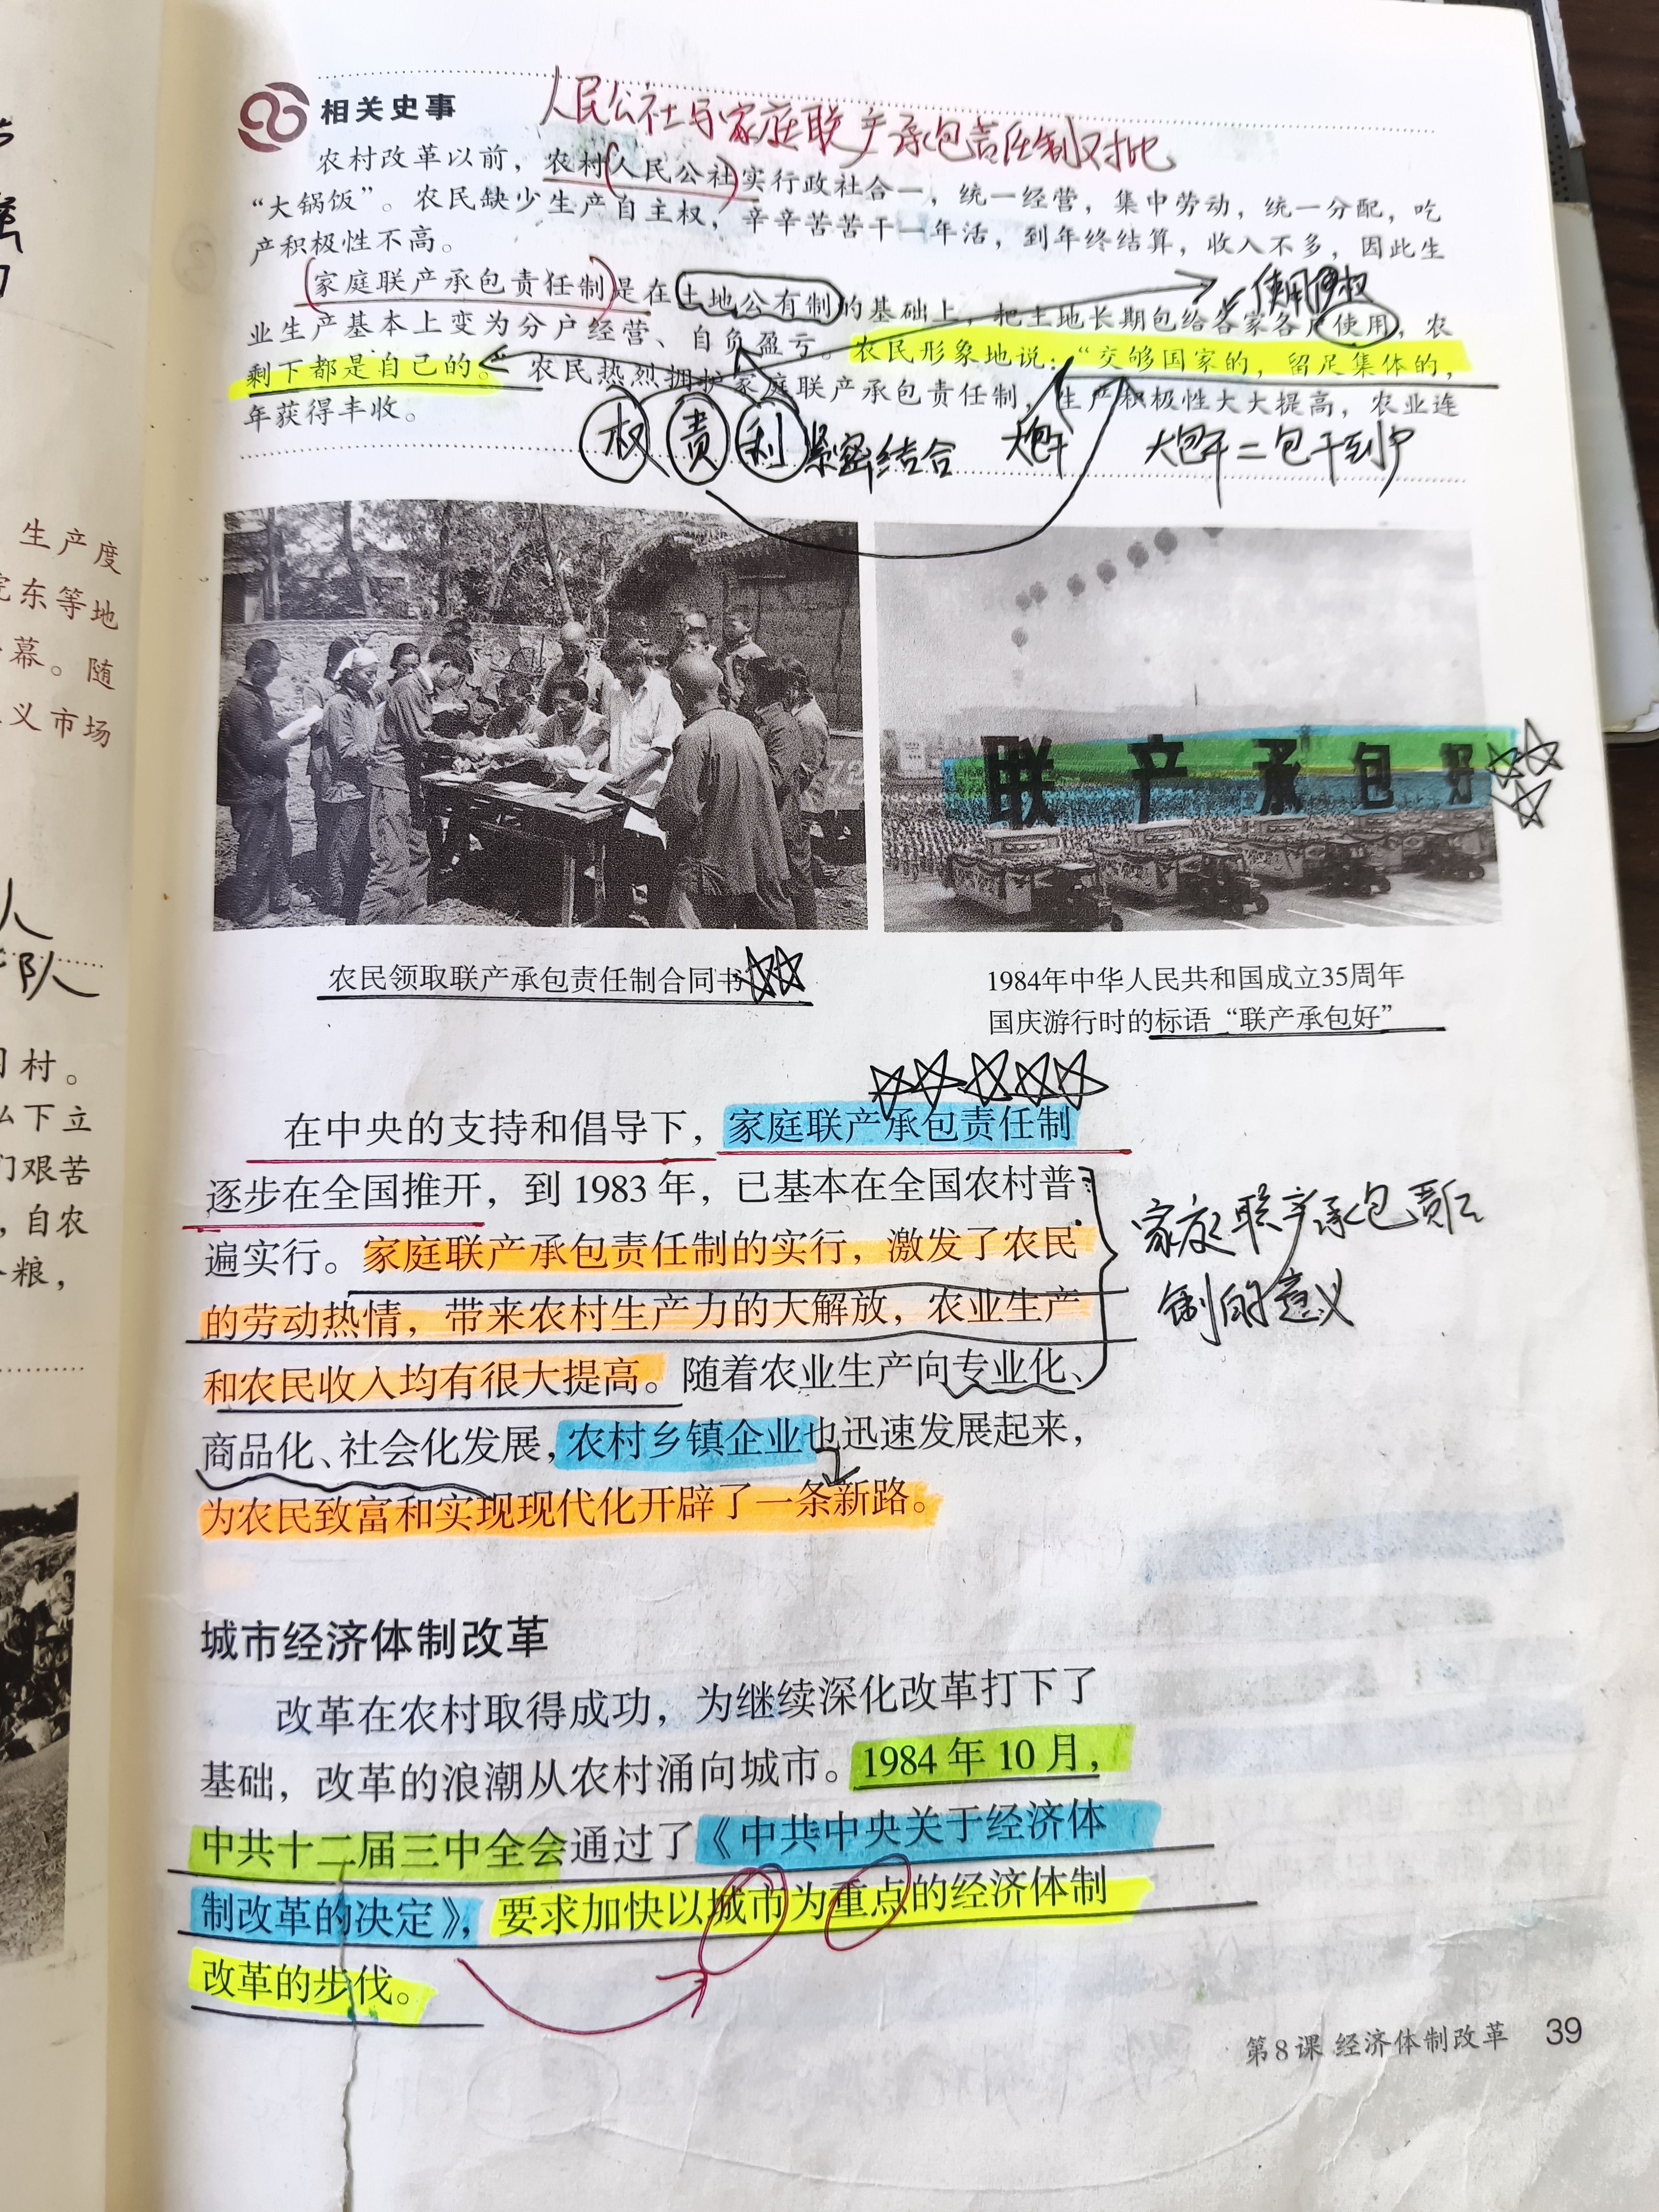 生产度
东等地
幕。随
义市场
人
队
村。
么下立
们艰苦
，自农
粮，
相关史事
人民公社与家庭联产承包责任制对比
农村改革以前，农村人民公社实行政社合一，统一经营，集中劳动，统一分配，吃
“大锅饭”。农民缺少生产自主权，辛辛苦苦干一年活，到年终结算，收入不多，因此生
产积极性不高。
使用权
家庭联产承包责任制是在土地公有制的基础上，把土地长期包给各家各户使用，农
业生产基本上变为分户经营、自负盈亏。农民形象地说：“交够国家的，留足集体的，
剩下都是自己的。农民热烈拥护家庭联产承包责任制，生产积极性大大提高，农业连
年获得丰收。
权 责 利 紧密结合 大包干 大包干＝包干到户
联产承包好
农民领取联产承包责任制合同书
1984年中华人民共和国成立35周年
国庆游行时的标语“联产承包好”
在中央的支持和倡导下，家庭联产承包责任制
逐步在全国推开，到1983年，已基本在全国农村普
遍实行。家庭联产承包责任制的实行，激发了农民
的劳动热情，带来农村生产力的大解放，农业生产
和农民收入均有很大提高。随着农业生产向专业化、
商品化、社会化发展，农村乡镇企业也迅速发展起来，
为农民致富和实现现代化开辟了一条新路。
家庭联产承包责任
制的意义
城市经济体制改革
改革在农村取得成功，为继续深化改革打下了
基础，改革的浪潮从农村涌向城市。1984年10月，
中共十二届三中全会通过了《中共中央关于经济体
制改革的决定》，要求加快以城市为重点的经济体制
改革的步伐。
第8课 经济体制改革 39